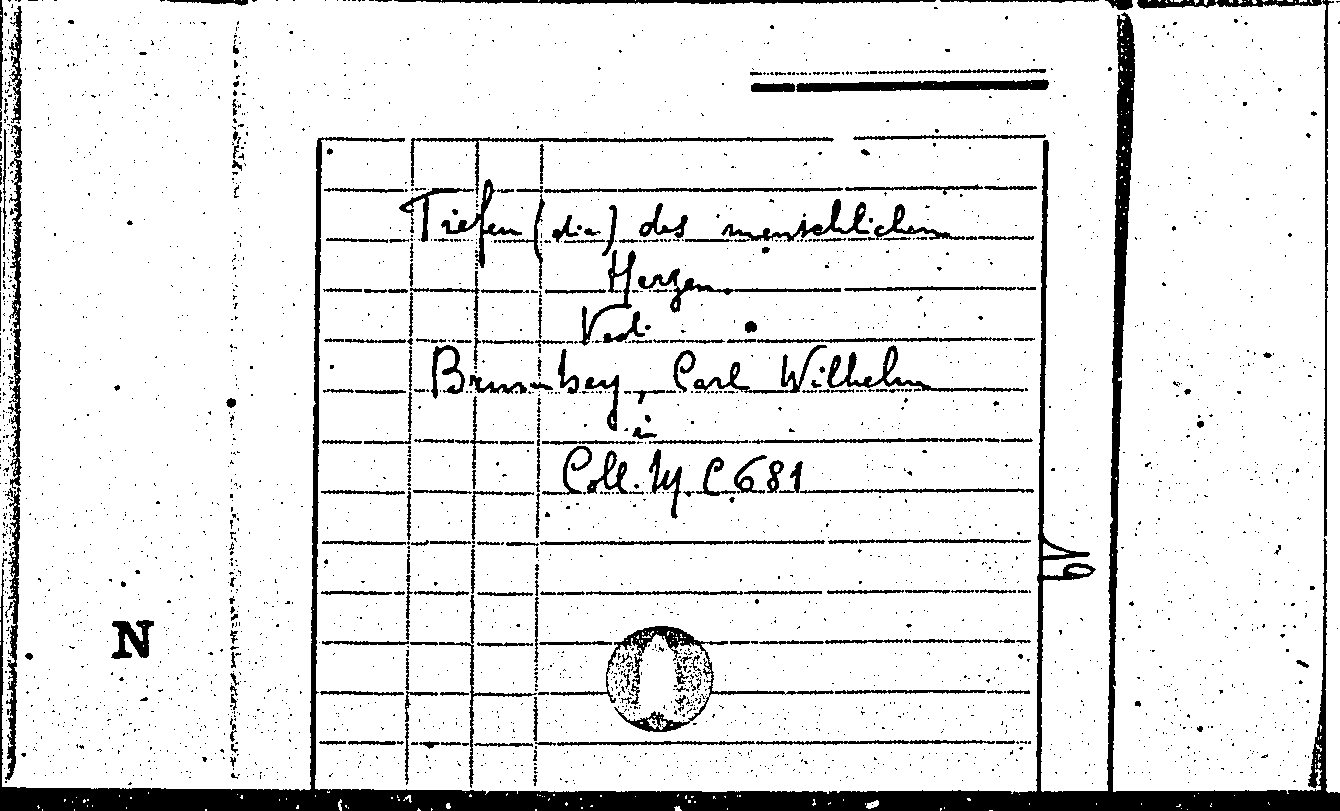 Tiefen (die) des menschlichen
Herzen.
Vedi
Brumbey, Carl Wilhelm
in
Coll. M. C 681
N